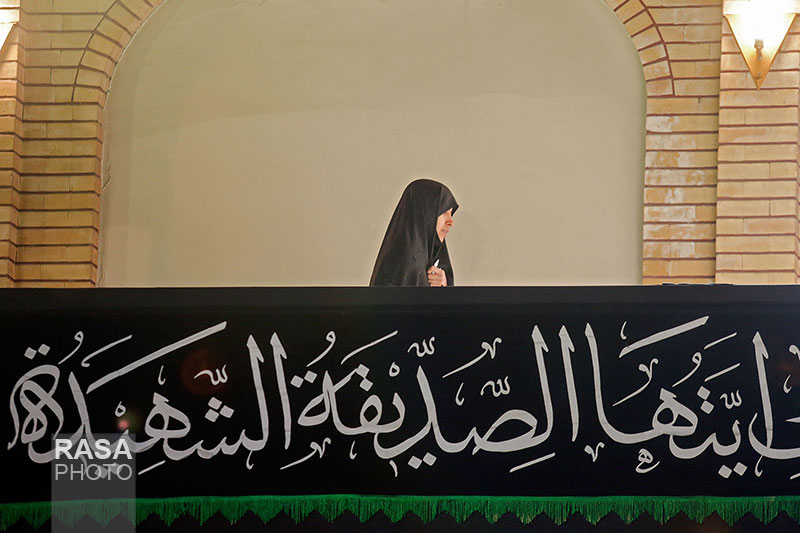 أَيَّتُهَا الصِّدِّيقَةُ الشَّهِيدَةُ
RASA
PHOTO